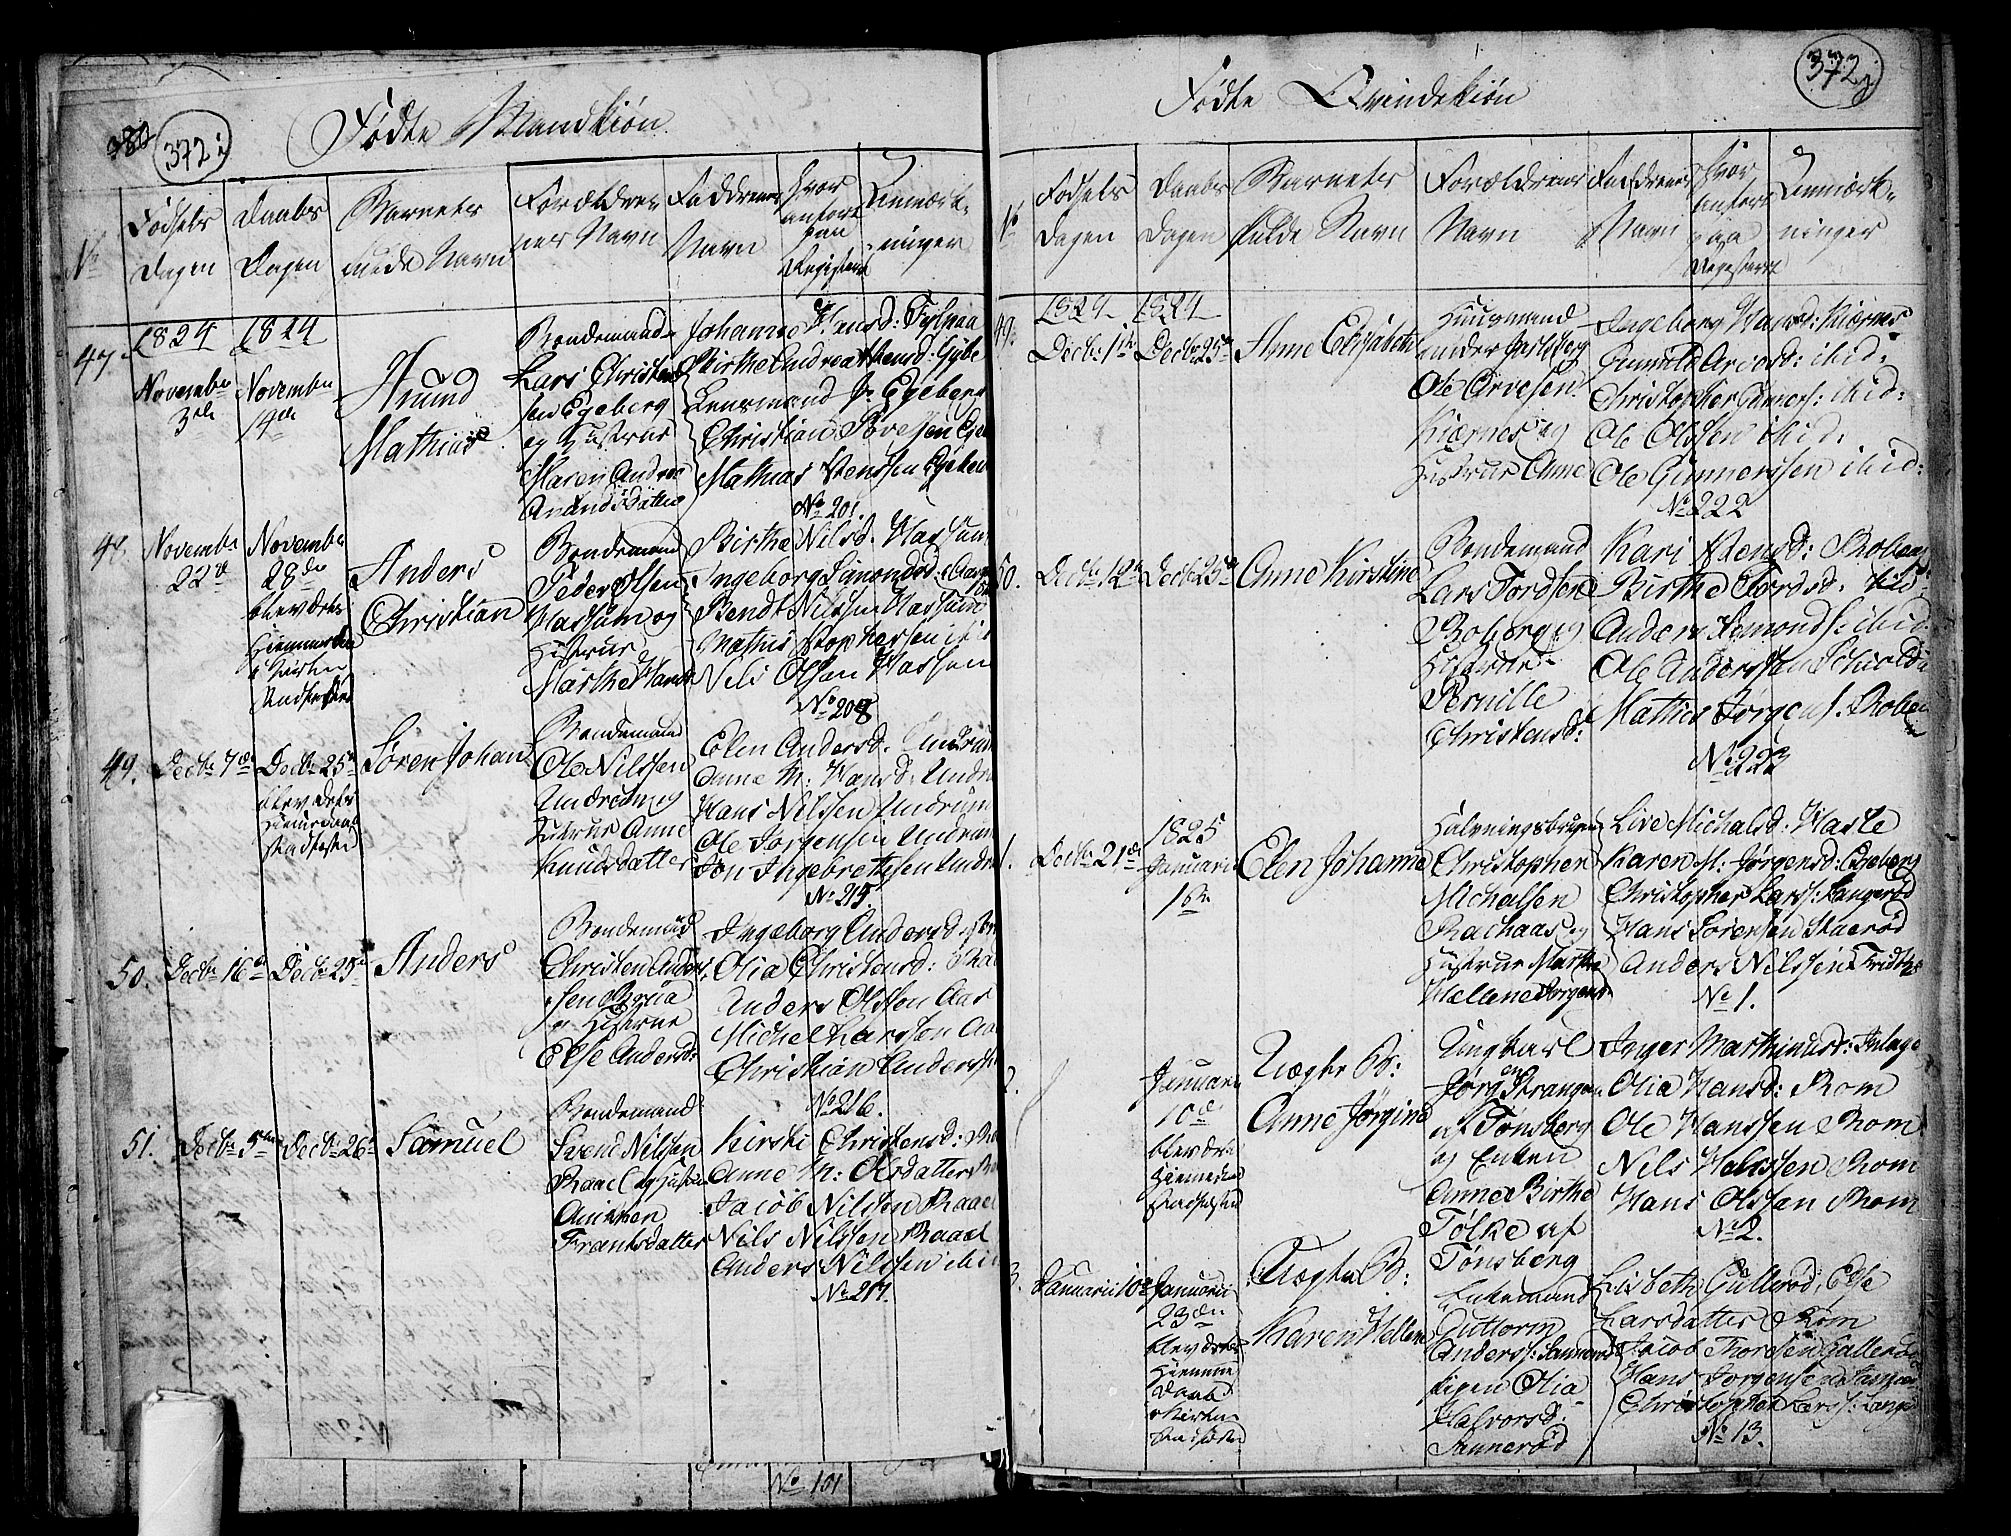 380
372 i
Fødte Mandkiøn
No
Fødsels Dagen
Daabs Dagen
Barnets fulde Navn
Forældrenes Navn
Faddrenes Navn
Hvor anført paa Registeret
Anmærkninger
47.
1824
Novembr
3de
1824
Novembr
14de
Amund
Mathias
Bondemand
Lars Christen
sen Egeberg
og Hustrue
Maren Andrea
Amundsdatter
Johanne Hansd: Fylpaa
Birthe Andrea Stensd: Gybe
Lensmand Egeberg
Christian Povelsen
Mathias Stenssen Egeber
No 201.
48.
Novembr
22de
Novembr
28de
blev dets
Hiemmedaab
i Kirken
Stadfæstet
Anders
Christian
Bondemand
Peder Olsen
Hassum og
Hustrue
Marthe Hansd
Birthe Nilsd. Hassum
Ingeborg Simonsd:
Bendt Nilssen Hassum
Mathis Stophersen ibid
Nils Olssen Hassum
No 208
49.
Decbr 7de
Decbr 25de
blev dets
Hiemmedaab
Stadfæstet
Søren Johan
Bondemand
Ole Nilssen
Undrum og
Hustrue Anne
Knudsdatter
Elen Andersd. Undrum
Anne M. Hansd: Undru
Hans Nilssen Undrum
Ole Jørgensen Undrum
Jon Ingebretssen Undru
No 215.
50.
Decbr 16de
Decbr 25de
Anders
Bondemand
Christen Anders
sen
og Hustrue
Else Andersd:
Ingeborg Andersd
Olia Christensd:
Anders Olsson Aas
Michel Larsson Aa
Christian Anderss
No 216.
51.
Decbr 5te
Decbr 26de
Samuel
Bondemand
Svend Nilssen
Raael og Hustrue
Anikken
Frantsdatter
Kirsti Christensd:
Anne M: Olsdatter
Jacob Nilssen Raael
Nils Nilssen Raael
Anders Nilssen ibid
No 217.
No 101
372 j
Fødte Qvindekiøn
No
Fødsels Dagen
Daabs Dagen
Barnets fulde Navn
Forældrenes Navn
Faddrenes Navn
Hvor anført paa Registeret
Anmærkninger
49.
1824
Decbr 1ste
1824
Decbr 25de
Anne Elisabeth
Huusmand
under Jarlsberg
Ole Arvesen
Kiærnes og
Hustrue Anne
Ingeborg Hansd: Kiærnes
Gunnild ibid:
Christopher ibid:
Ole Olssen ibid.
Ole Gunnerssen ibid:
No 222
50.
Decbr 12te
Decbr 25de
Anne Kirstine
Bondemand
Lars Tordsen
Roberg og
Hustrue
Pernille
Christensd:
Kari Stensd: Roberg
Birthe Tordsd. ibid.
Anders Simonds: ibid.
Ole Anderssen
Mathies Jørgens. Rober
No 223
1.
Decbr 21de
1825
Januarii
16de
Elen Johanne
Halvningsbruger
Christopher
Michelsen
Rachaas og
Hustrue Marthe
Hellene Jørgensd
Live Michalsd: Hasle
Karen M. Jørgensd:
Christopher Larss: Langerød
Hans Sørensen Staerød
Anders Nilssen
No 1.
2.
Januarii
10de
blev dets
Hiemmedaab
Stadfæstet
Uægte B:
Anne Jørgine
Ungkarl
Jørgen Strangen
af Tønsberg
og Enken
Anne Birthe
Tølke af
Tønsberg
Inger Marthinusd:
Olia Hansd: Rom
Ole Hanssen Rom
Nils Helgssen Rom
Hans Olssen Rom
No 2.
3.
Januarii 10de
Januarii
23de
blev dets
Hiemme
Daab
i Kirken
Stadfæstet
Uægte B:
Karen Hellene
Enkemand
Guttorm
Anderss: Sannerød
Pigen Olia
Halvorsd:
Sannerød
Lisbeth Gullerød, Else
Larsdatter Rom
Jacob Thordsen Gallerød
Hans Jørgensen
Christopher Larss: Langrød
No 13.